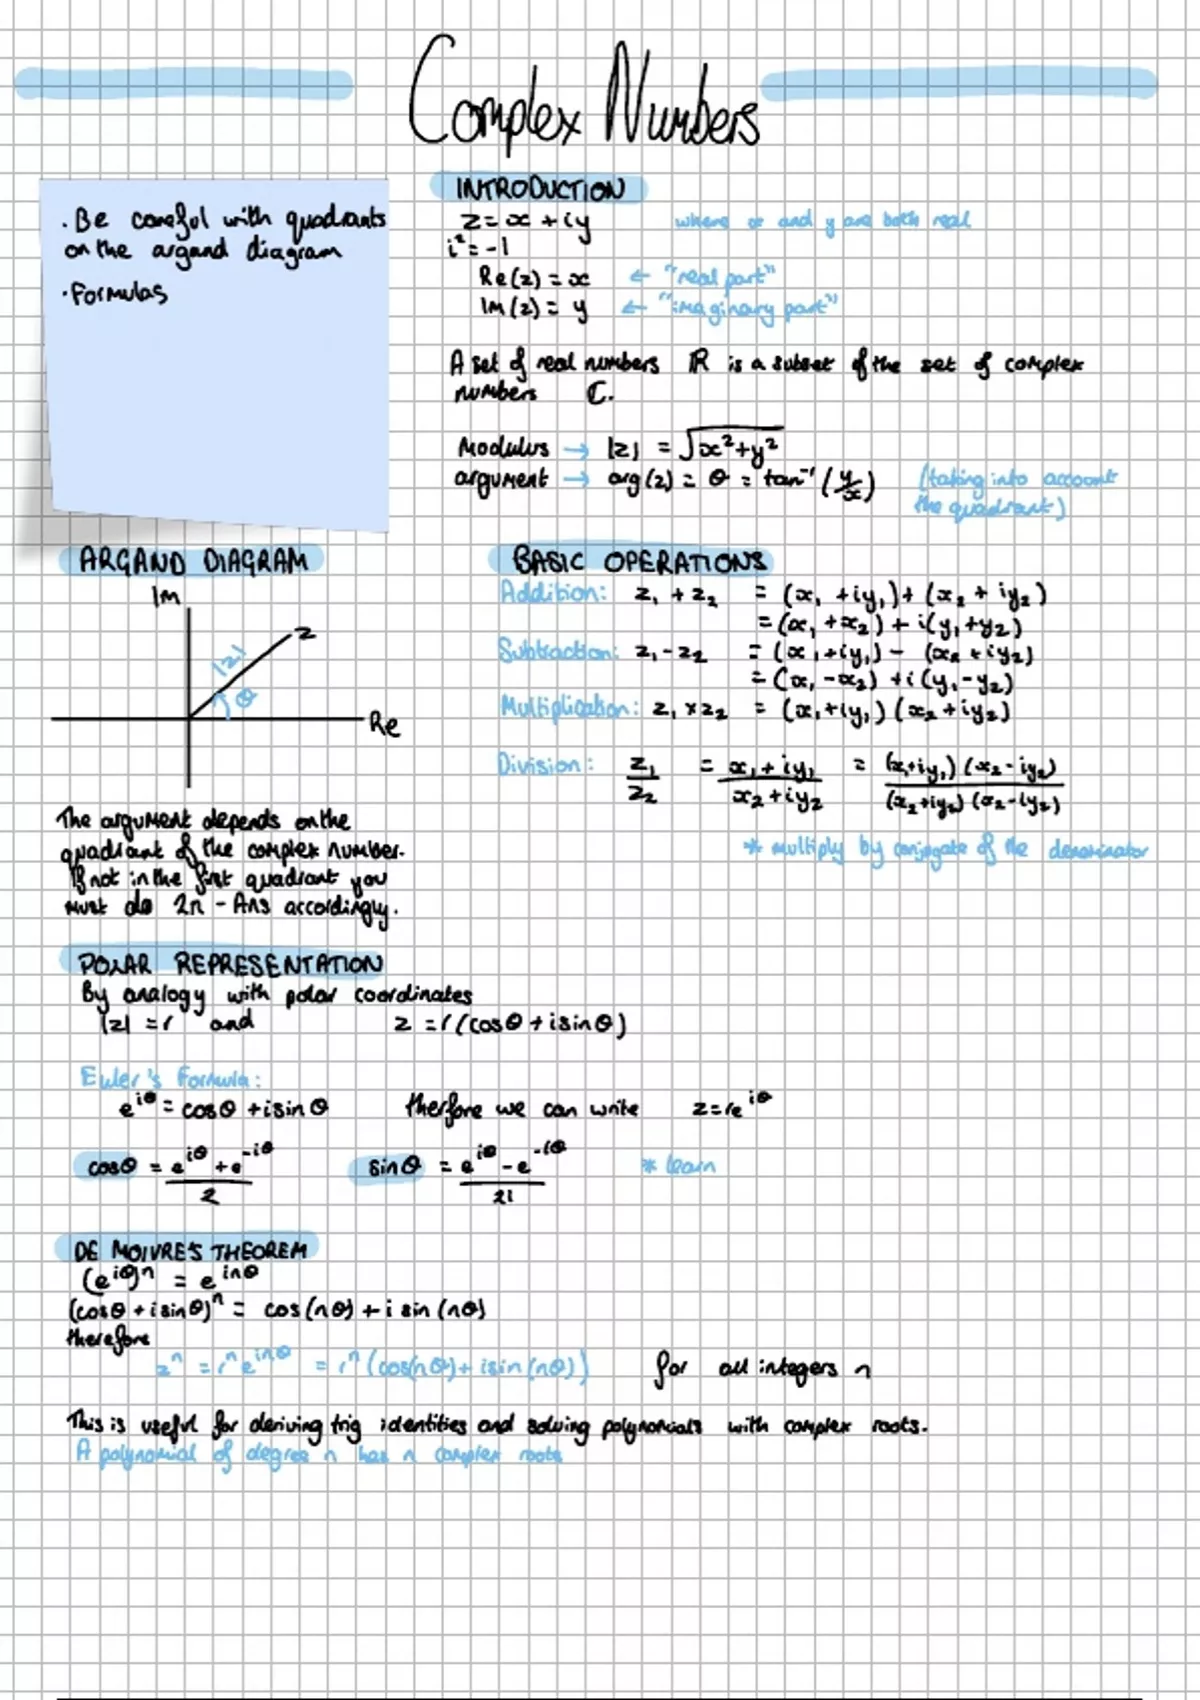 Complex Numbers
. Be careful with quadrants
on the argand diagram
. Formulas
INTRODUCTION
z = x + iy where x and y are both real
i² = -1
Re(z) = x ← "real part"
Im(z) = y ← "imaginary part"
A set of real numbers ℝ is a subset of the set of complex
numbers ℂ.
Modulus → |z| = √(x² + y²)
argument → arg(z) = θ = tan⁻¹ (y/x) (taking into account
the quadrant)
ARGAND DIAGRAM
Im
z
|z|
θ
Re
The argument depends on the
quadrant of the complex number.
If not in the first quadrant you
must do 2π - Ans accordingly.
BASIC OPERATIONS
Addition: z₁ + z₂ = (x₁ + iy₁) + (x₂ + iy₂)
= (x₁ + x₂) + i(y₁ + y₂)
Subtraction: z₁ - z₂ = (x₁ + iy₁) - (x₂ + iy₂)
= (x₁ - x₂) + i(y₁ - y₂)
Multiplication: z₁ × z₂ = (x₁ + iy₁)(x₂ + iy₂)
Division: z₁/z₂ = (x₁ + iy₁)/(x₂ + iy₂) = (x₁ + iy₁)(x₂ - iy₂)/(x₂ + iy₂)(x₂ - iy₂)
* multiply by conjugate of the denominator
POLAR REPRESENTATION
By analogy with polar coordinates
|z| = r and z = r(cosθ + isinθ)
Euler's Formula:
e^iθ = cosθ + isinθ therfore we can write z = re^iθ
cosθ = (e^iθ + e^-iθ)/2 sinθ = (e^iθ - e^-iθ)/2i * learn
DE MOIVRE'S THEOREM
(e^iθ)^n = e^inθ
(cosθ + isinθ)^n = cos(nθ) + i sin(nθ)
therefore
z^n = r^n e^inθ = r^n (cos(nθ) + isin(nθ)) for all integers n
This is useful for deriving trig identities and solving polynomials with complex roots.
A polynomial of degree n has n complex roots